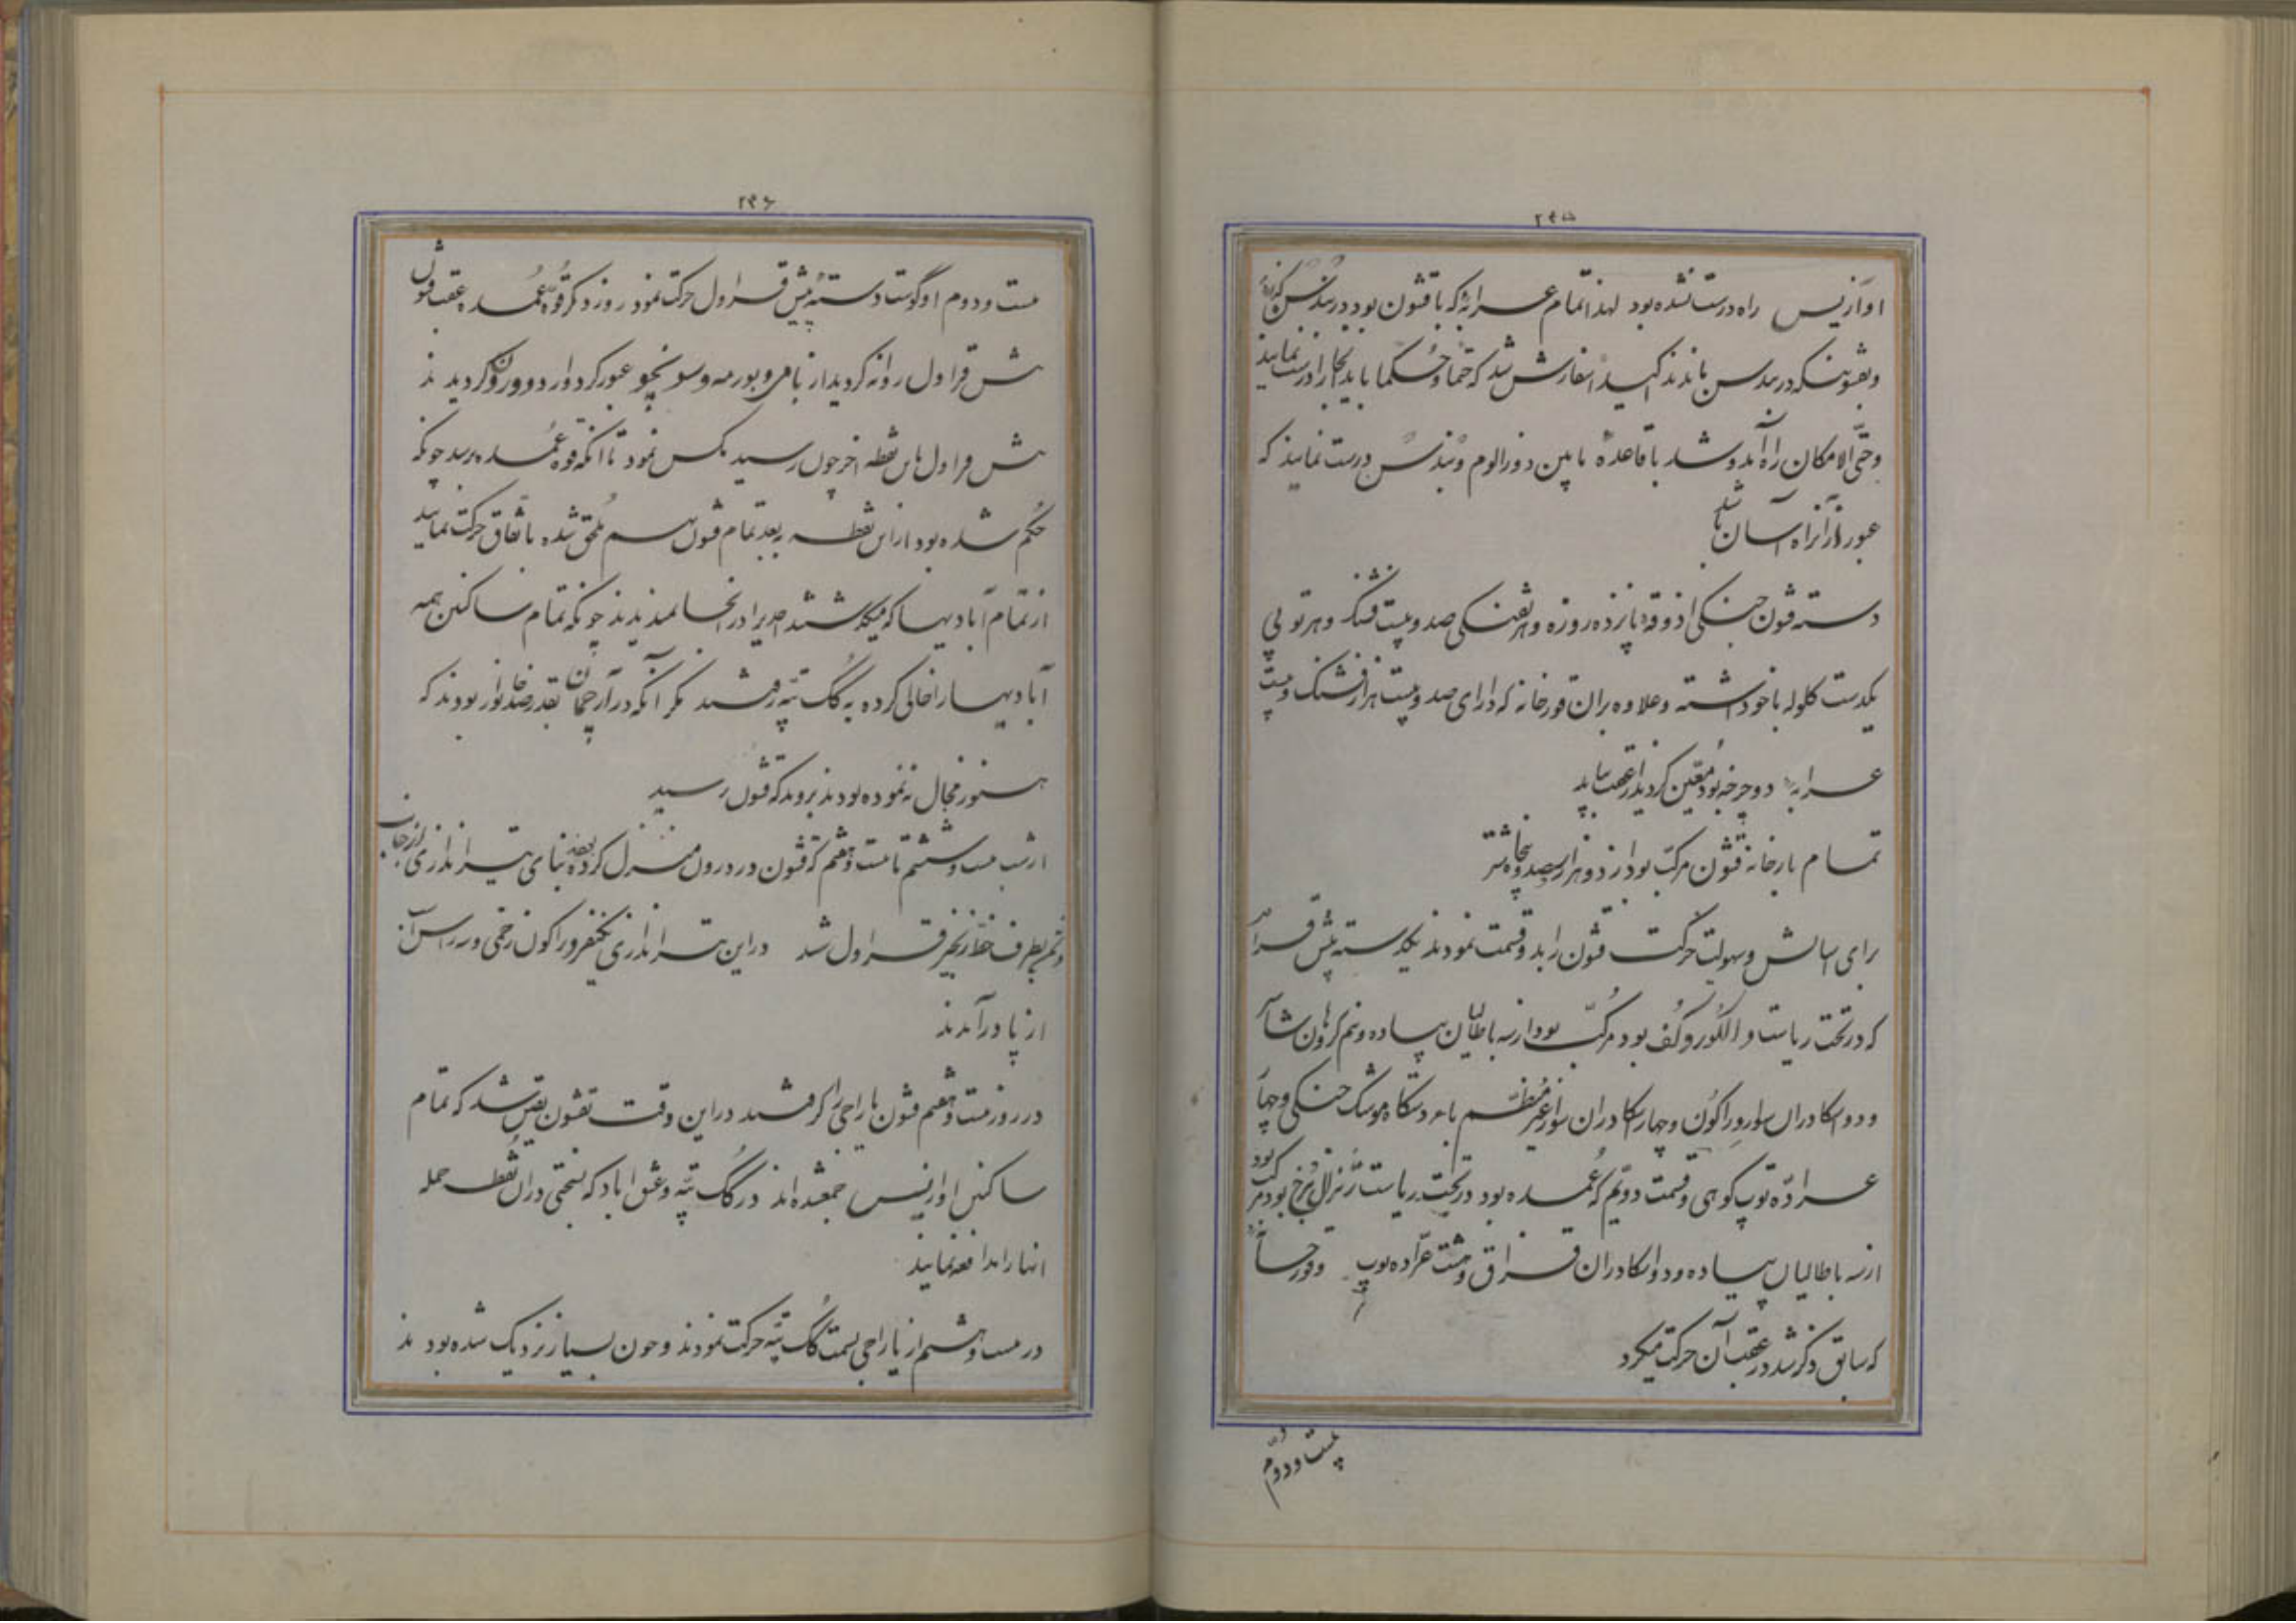 ۲۹۵
اوآزیس راه درست نشده بود لهذا تمام عرابهٔ که با قشون بود در بندسن گذاردند
و بقشونیکه در بندسن ماندند اکیداً سفارش شد که حتما و حکما باید آنجا را درست نمایند
و حتی الامکان راه آمد و شد با قاعدهٔ مابین دوزالوم و بندسن درست نمایند که
عبور از آنراه آسان باشد
دسته قشون جنگی اذوقه پانزده روزه و هر تفنگی صد و بیست فشنگ و هر توپی
یکدست گلوله با خود داشته و علاوه بران قورخانه که دارای صد و بیست هزار فشنگ و بیست
عرابه دو چرخه بود معین گردید از عقب بیاید
تمام بارخانه قشون مرکب بود از دو هزار و سیصد و پنجاه شتر
برای اسایش و سهولت حرکت قشون را بدو قسمت نمودند یکدسته پیش قراول
که در تحت ریاست دالگوروکف بود مرکب بود از سه باطالیان پیاده و نیم
و دو اسکادران سوار دراگون و چهار اسکادران سوار غیر منظم با دستگاه موشک جنگی و چهار
عراده توپ کوهی و قسمت دویم که عمده بود در تحت ریاست ژنرال برخ بود مرکب بود
از سه باطالیان پیاده و دو اسکادران قزاق و هشت عراده توپ و قورخانه
که سابق ذکر شد در عقب آن حرکت میکرد
بیست و دویم
۲۹۶
بیست و دوم اوگوست دستهٔ پیش قراول حرکت نمود روز دیگر قوهٔ عمده بعقب قشون
پیش قراول روانه گردید از بامی و بورمه و سونچو عبور کرد وارد دورون گردیدند
پیش قراول باین نقطه اخر چون رسید مکس نمود تا انکه قوه عمده برسد چونکه
حکم شده بود از این نقطه ببعد تمام قشون بهم ملحق شده باتفاق حرکت نمایند
از تمام آبادیها که میگذشتند احدیرا در انجا نمیدیدند چونکه تمام ساکنین همه
آبادیها را خالی کرده به گک تپه رفتند مگر انکه در آرچمان بقدر صد خانوار بودند که
هنوز مجال ننموده بودند بروند که قشون رسید
از شب بیست و ششم تا بیست و هفتم که قشون در درون منزل کرده بودند بنای تیراندازی از جانب
دشمن بطرف خط زنجیر قراول شد در این تیراندازی یکنفر دراگون زخمی و سه راس اسب
از پا درآمدند
در روز بیست و هفتم قشون یاراجی را گرفتند در این وقت بقشون یقین شد که تمام
ساکنین اوازیس جمع شده اند در گک تپه و عشق اباد که بسختی در ان نقطه حمله
انها را مدافعه نمایند
در بیست و هشتم از یاراجی بسمت گک تپه حرکت نمودند و چون بسیار نزدیک شده بودند